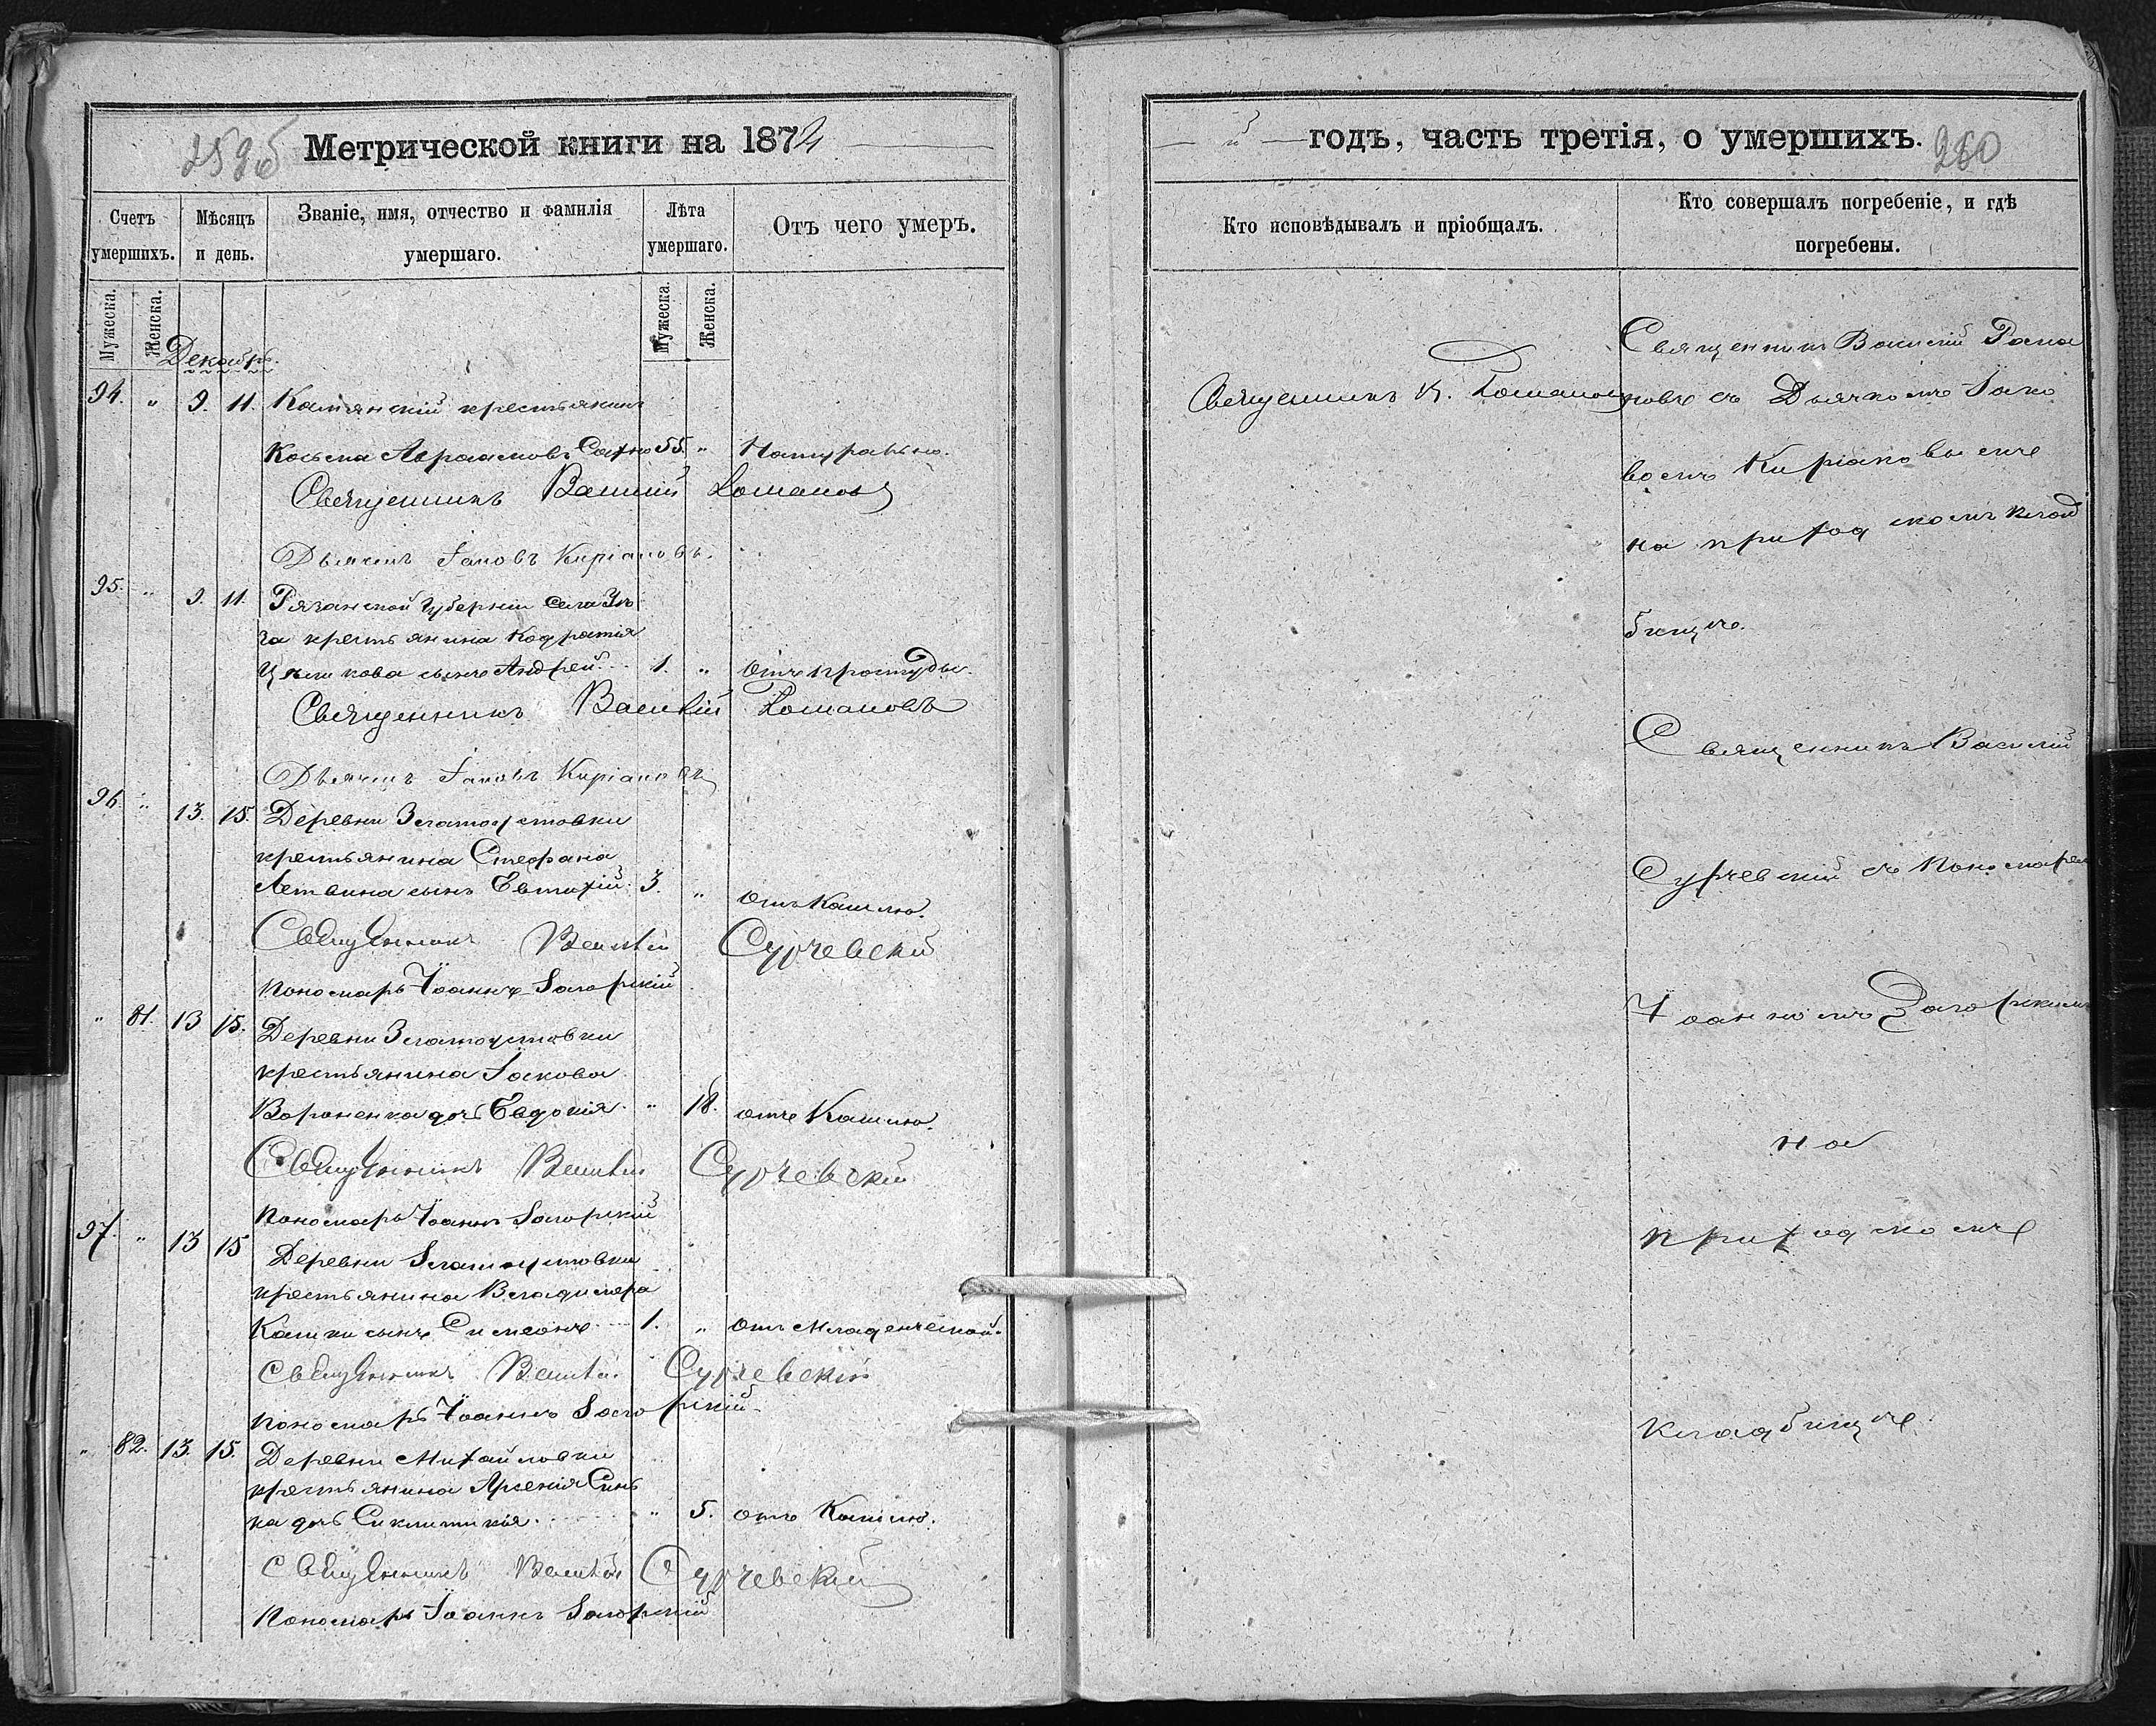 259об Метрической книги на 1872
Счетъ умершихъ.
Мѣсяцъ и день.
Званіе, имя, отчество и фамилія умершаго.
Лѣта умершаго.
Отъ чего умеръ.
Мужеска.
Женска.
Мужеска.
Женска.
Декабрь.
94. " 9. 11. Камянскій крестьянинъ
Косьма Авраамовъ Сахно 55. " Натурально.
Священникъ Василій Романовъ
Дьячекъ Іаковъ Киріаковъ.
95. " 9. 11. Рязанской губерніи села
крестьянина Кодратія
сынъ Андрей 1. " отъ простуды.
Священникъ Василій Романовъ
Дьячекъ Іаковъ Киріаковъ
96. " 13. 15. Деревни Златоустовки
крестьянина Стефана
Летвина сынъ Евтихій. 3. " отъ Кашлю.
Священникъ Василій Сурчевскій
Пономарь Іоаннъ Загорскій
" 81. 13 15. Деревни Златоустовки
крестьянина Іакова
Вороненка дочь Евдокія. " 18. отъ Кашлю.
Священникъ Василій Сурчевскій
Пономарь Іоаннъ Загорскій
97. " 13 15 Деревни Златоустовки
крестьянина Владимера
Калики сынъ Симеонъ 1. " отъ младенческой.
Священникъ Василій Сурчевскій
Пономарь Іоаннъ Загорскій
" 82. 13. 15. Деревни Михайловки
крестьянина Арсенія Синь
ка дочь Синклитикія. " 5. отъ Кашлю.
Священникъ Василій Сурчевскій
Пономарь Іоаннъ Загорскій
й годъ, часть третія, о умершихъ. 260
Кто исповѣдывалъ и пріобщалъ.
Кто совершалъ погребеніе, и гдѣ погребены.
Священникъ В. Романовъ
Священникъ Василій Рома
новъ съ Дьячкомъ Іако
вомъ Киріаковымъ
на приходскомъ клад
бищѣ.
Священникъ Василій
Сурчевскій съ Пономаремъ
Іоанномъ Загорскимъ
на
приходскомъ
кладбищѣ.